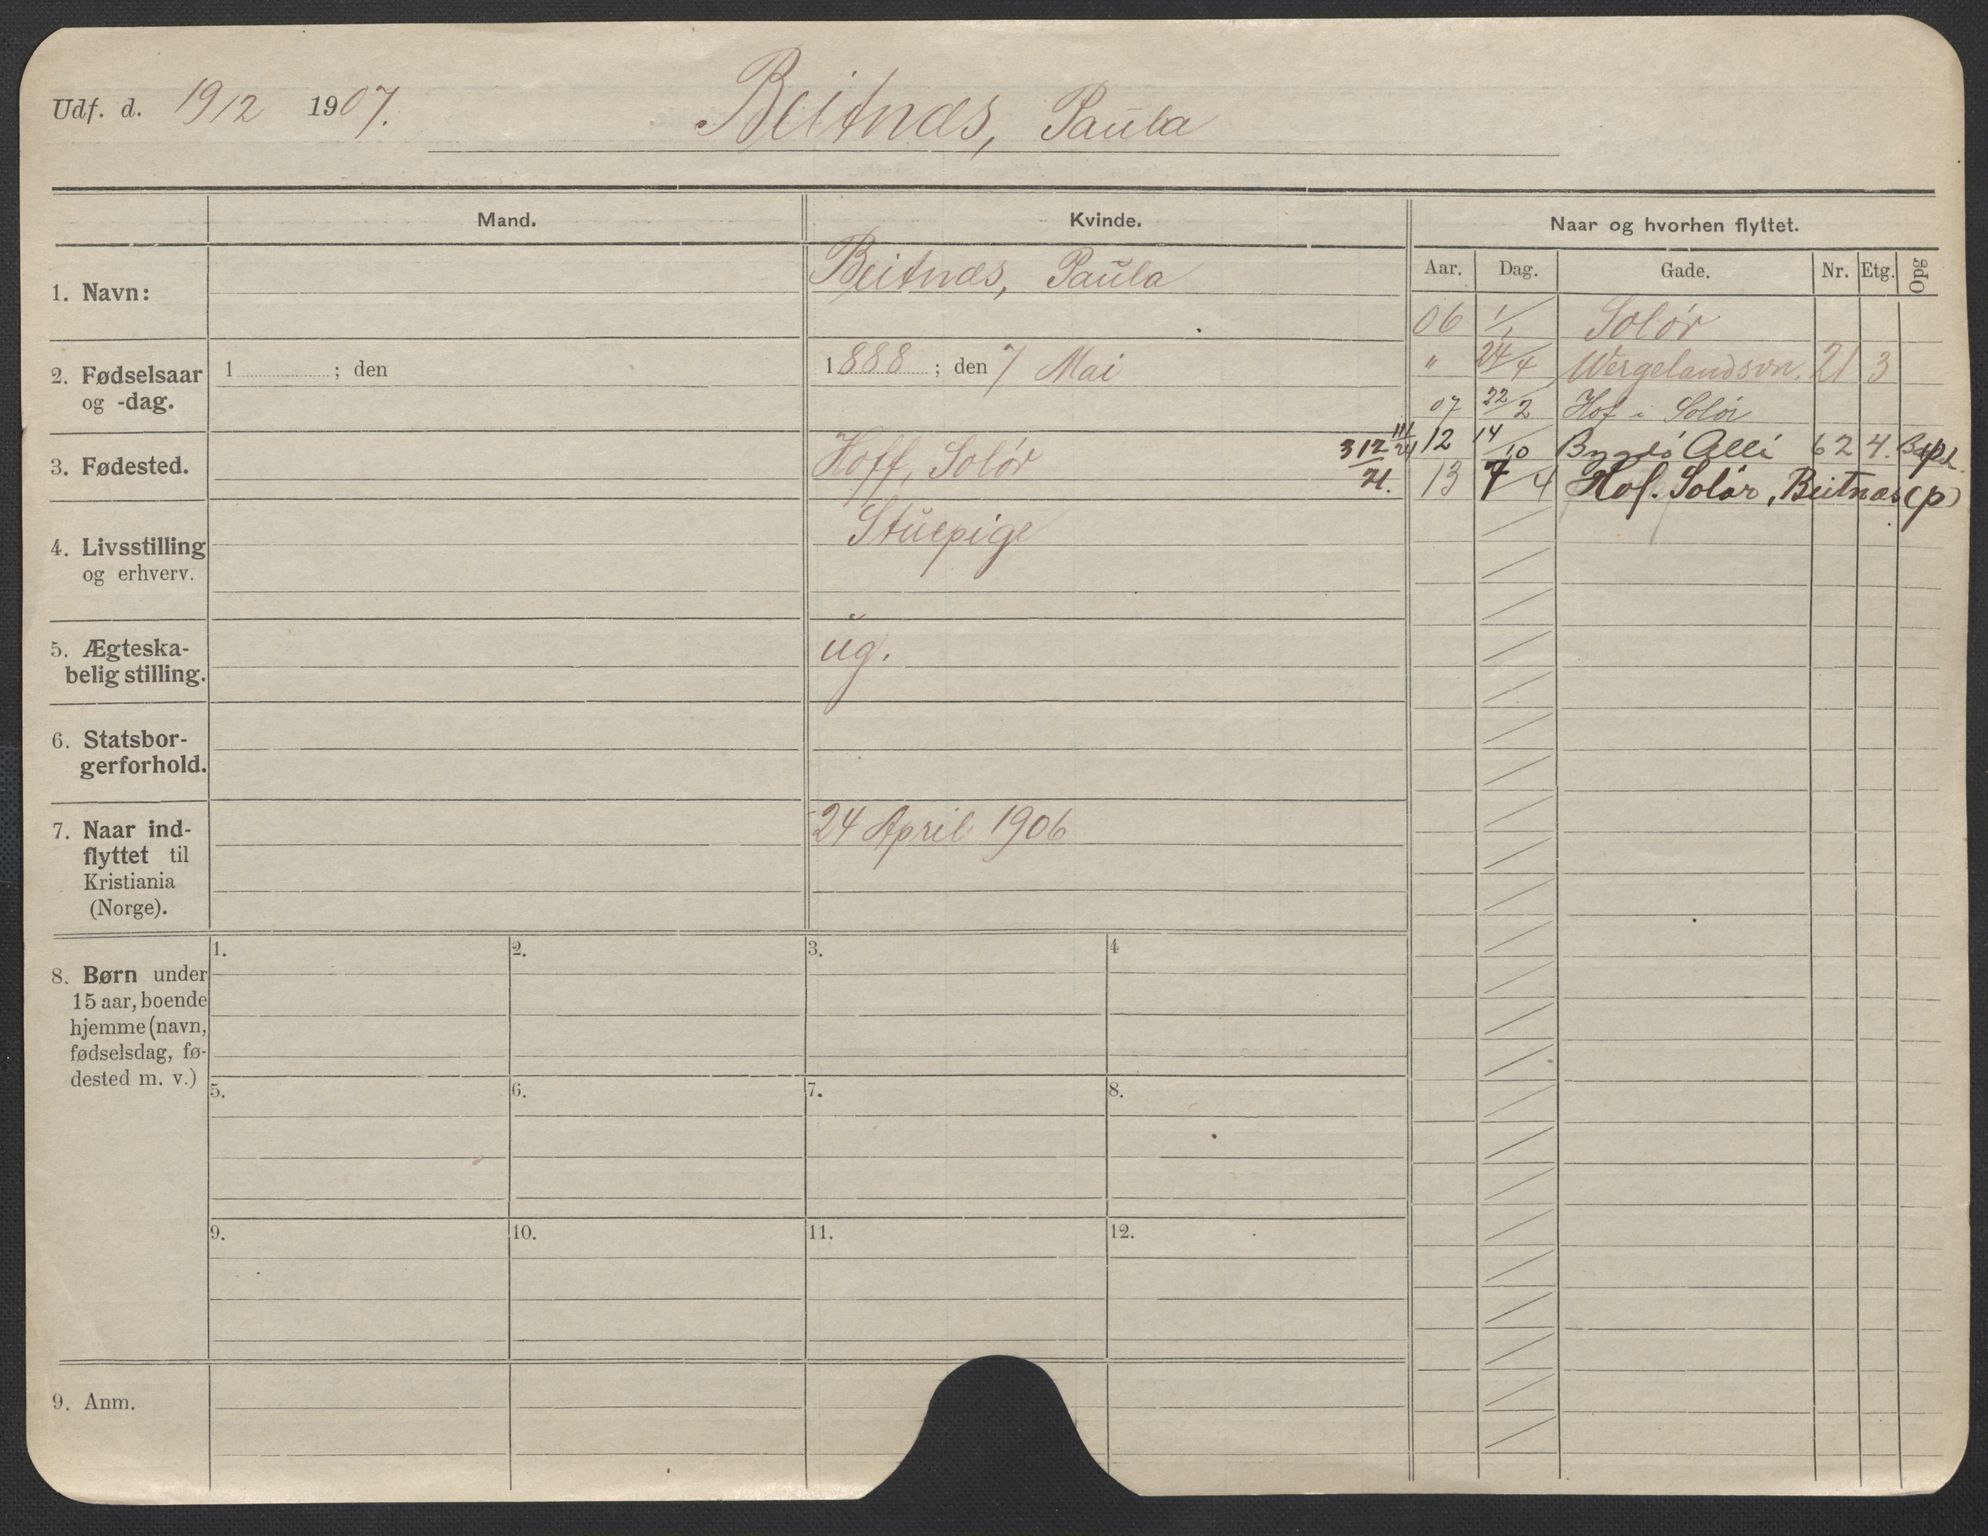 Udf. d. 19/2 1907. Beitnæs, Paula
Mand. Kvinde. Naar og hvorhen flyttet.
Aar. Dag. Gade. Nr. Etg. Opg
1. Navn: Beitnæs, Paula
2. Fødselsaar og -dag. 1 ; den 1888 ; den 7 Mai
3. Fødested. Hoff, Solör
4. Livsstilling og erhverv. Stuepige
5. Ægteska-
belig stilling. ug.
6. Statsbor-
gerforhold.
7. Naar ind-
flyttet til
Kristiania
(Norge).
24 April 1906
06 1/1 Solör
" 24/4 Wergelandsvn. 21 3
07 22/2 Hof i Solör
312/21. 12 14/10 Bygdö Allé 62 4.
13 7/4 Hof. Solör, Beitnæs (p)
8. Børn under
15 aar, boende
hjemme (navn,
fødselsdag, fø-
dested m. v.)
1. 2. 3. 4
5. 6. 7. 8.
9. 10. 11. 12.
9. Anm.